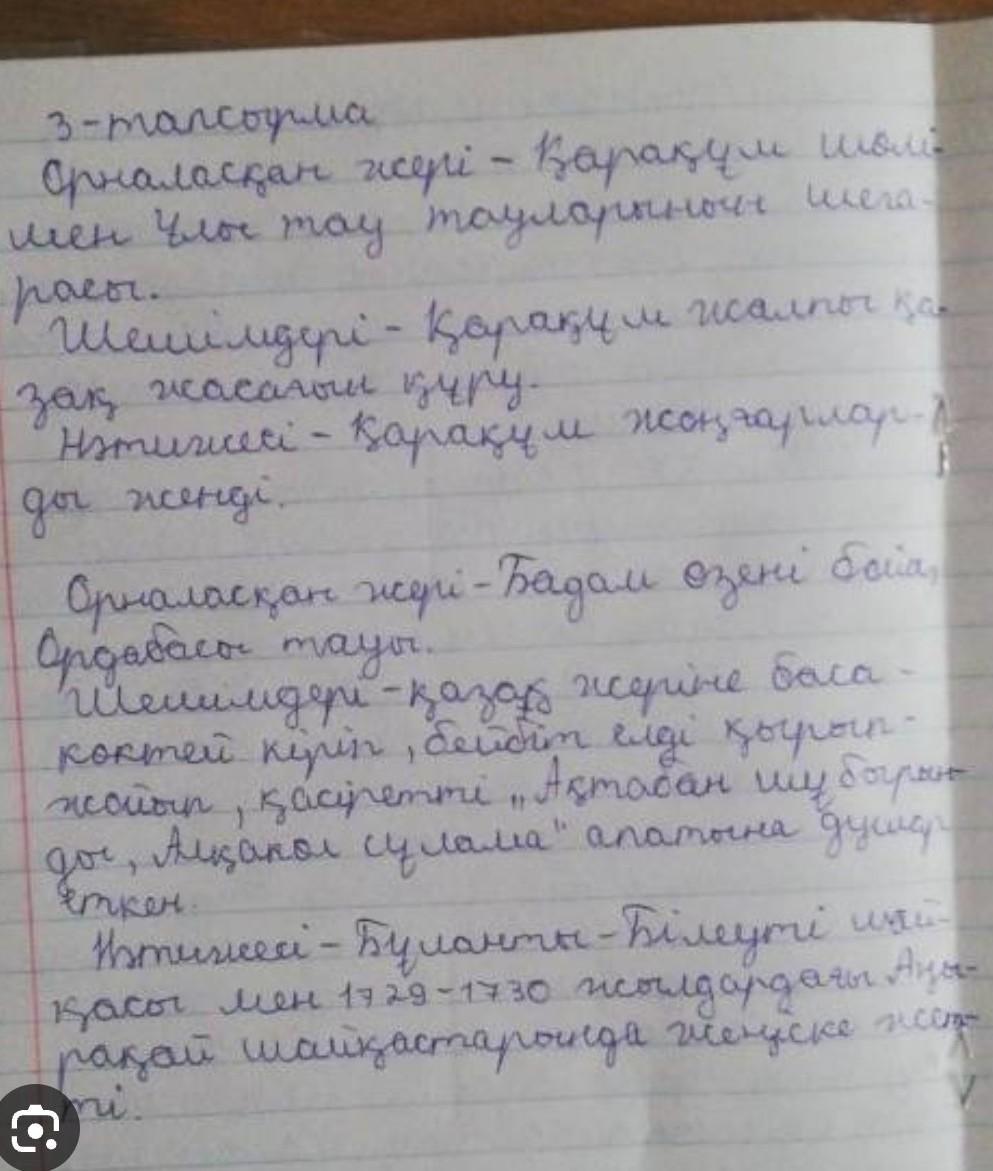 3-тапсырма
Орналасқан жері - Қарақұм шөлі-
мен Ұлы тау тауларының шега-
расы.
Шешімдері - Қарақұм жалпы қа-
зақ жасағын құру.
Нәтижесі - Қарақұм жоңғарлар-
ды женді.
Орналасқан жері - Бадам өзені бойы,
Ордабасы тауы.
Шешімдері - қазақ жеріне баса -
көктей кіріп, бейбіт елді қырып -
жойып, қасіретті „Ақтабан шұбырын-
ды, Алқакөл сұлама" апатына душар
еткен.
Нәтижесі - Бұланты - Білеуті шай-
қасы мен 1729-1730 жылдардағы Аңы-
рақай шайқастарында жеңіске жет-
ті.